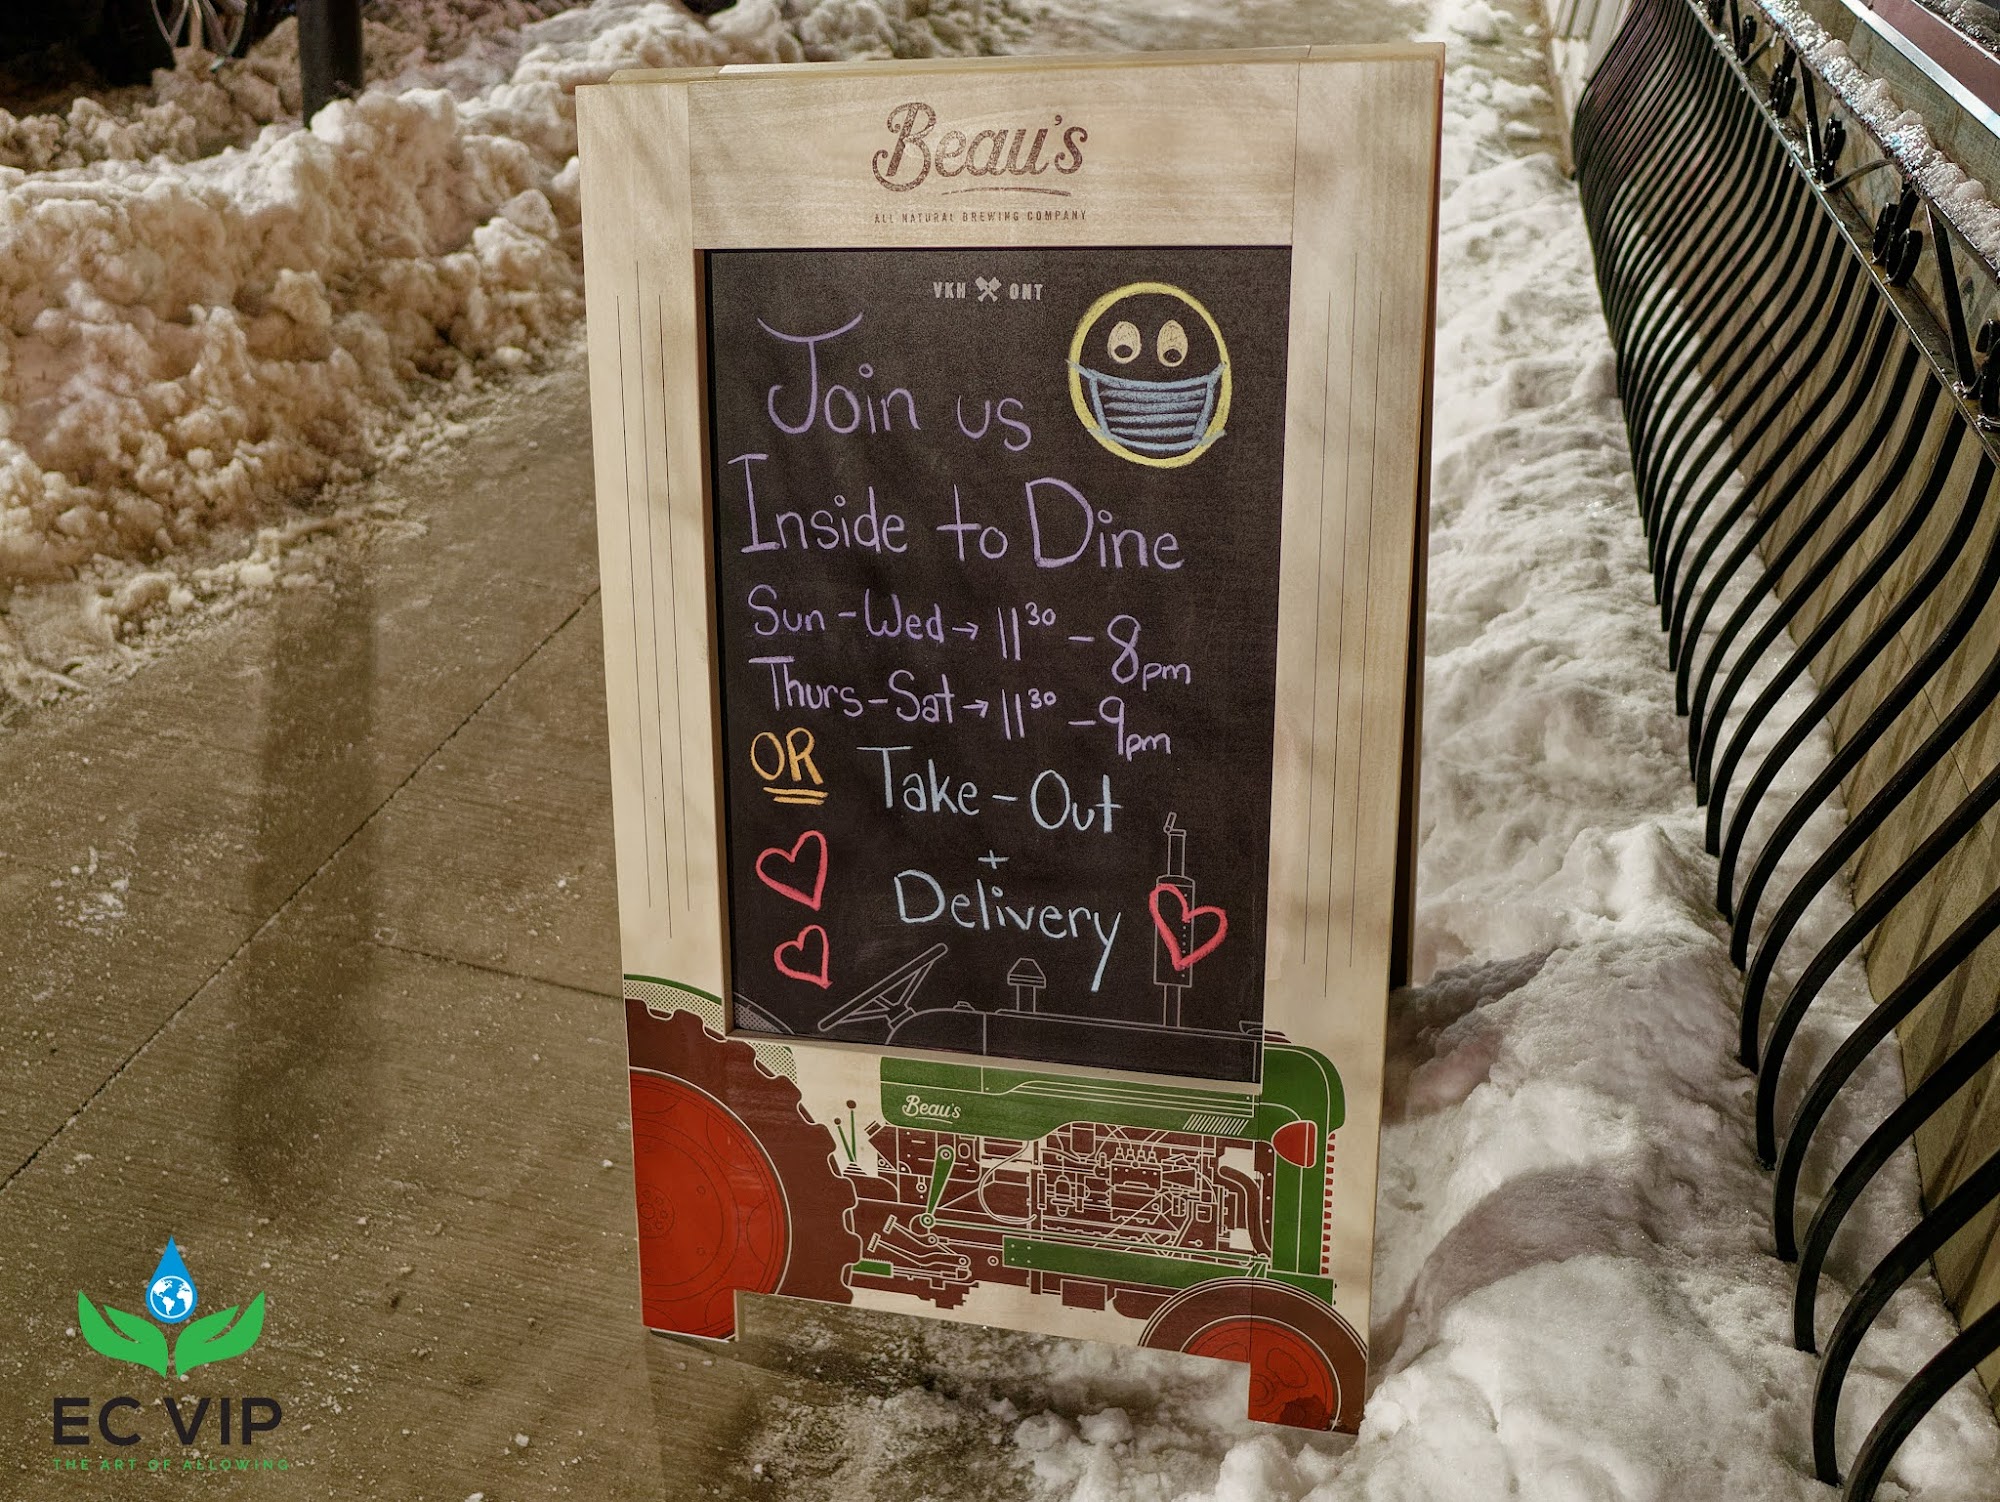 Beau's
ALL NATURAL BREWING COMPANY
VKH ONT
Join us
Inside to Dine
Sun-Wed → 11³⁰ - 8pm
Thurs-Sat → 11³⁰ - 9pm
OR Take-Out
+
Delivery
Beau's
EC VIP
THE ART OF ALLOWING